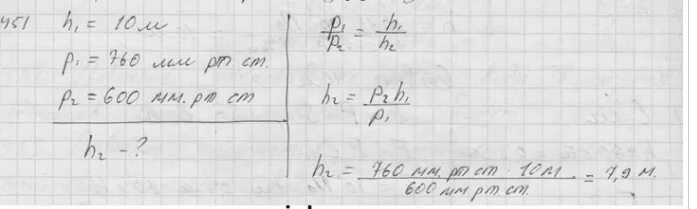 451 h₁ = 10 м
p₁ = 760 мм рт ст.
p₂ = 600 мм. рт ст
h₂ - ?
p₁/p₂ = h₁/h₂
h₂ = p₂h₁/p₁
h₂ = 760 мм. рт ст · 10 м / 600 мм рт ст. = 7,9 м.